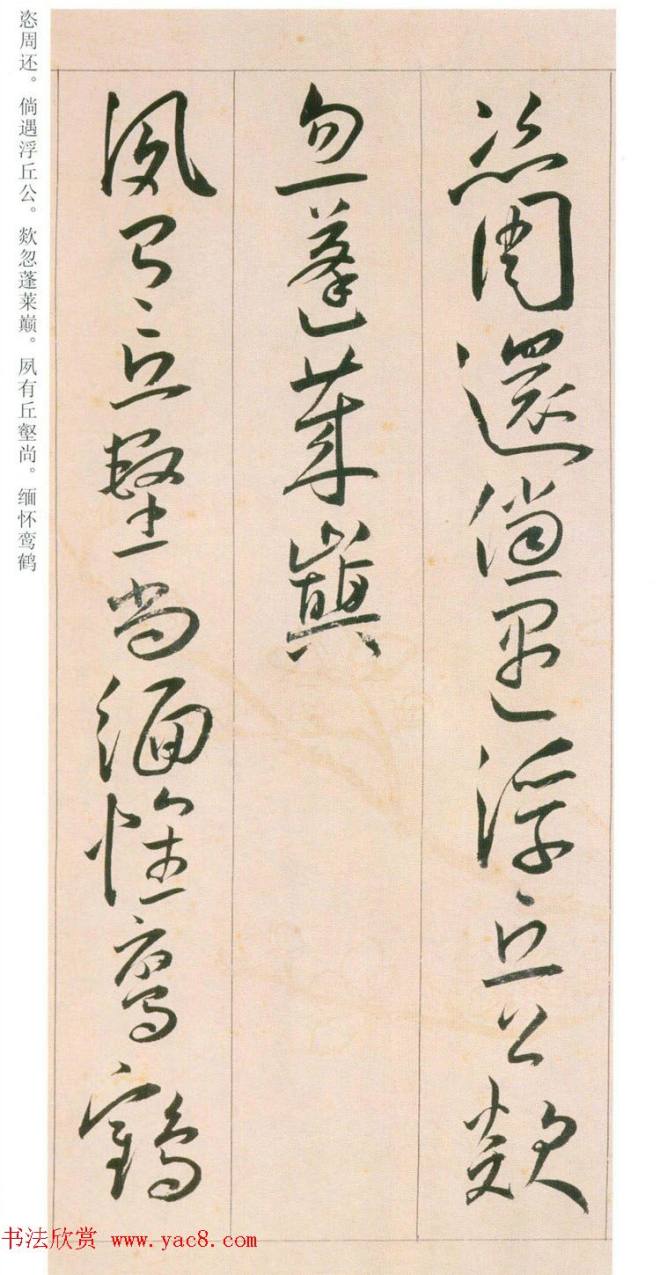 恣周還倘遇浮丘公欻
忽蓬萊巔
夙有丘壑尚緬懷鸞鶴
恣周还。倘遇浮丘公。欻忽蓬莱巅。夙有丘壑尚。缅怀鸾鹤
书法欣赏 www.yac8.com